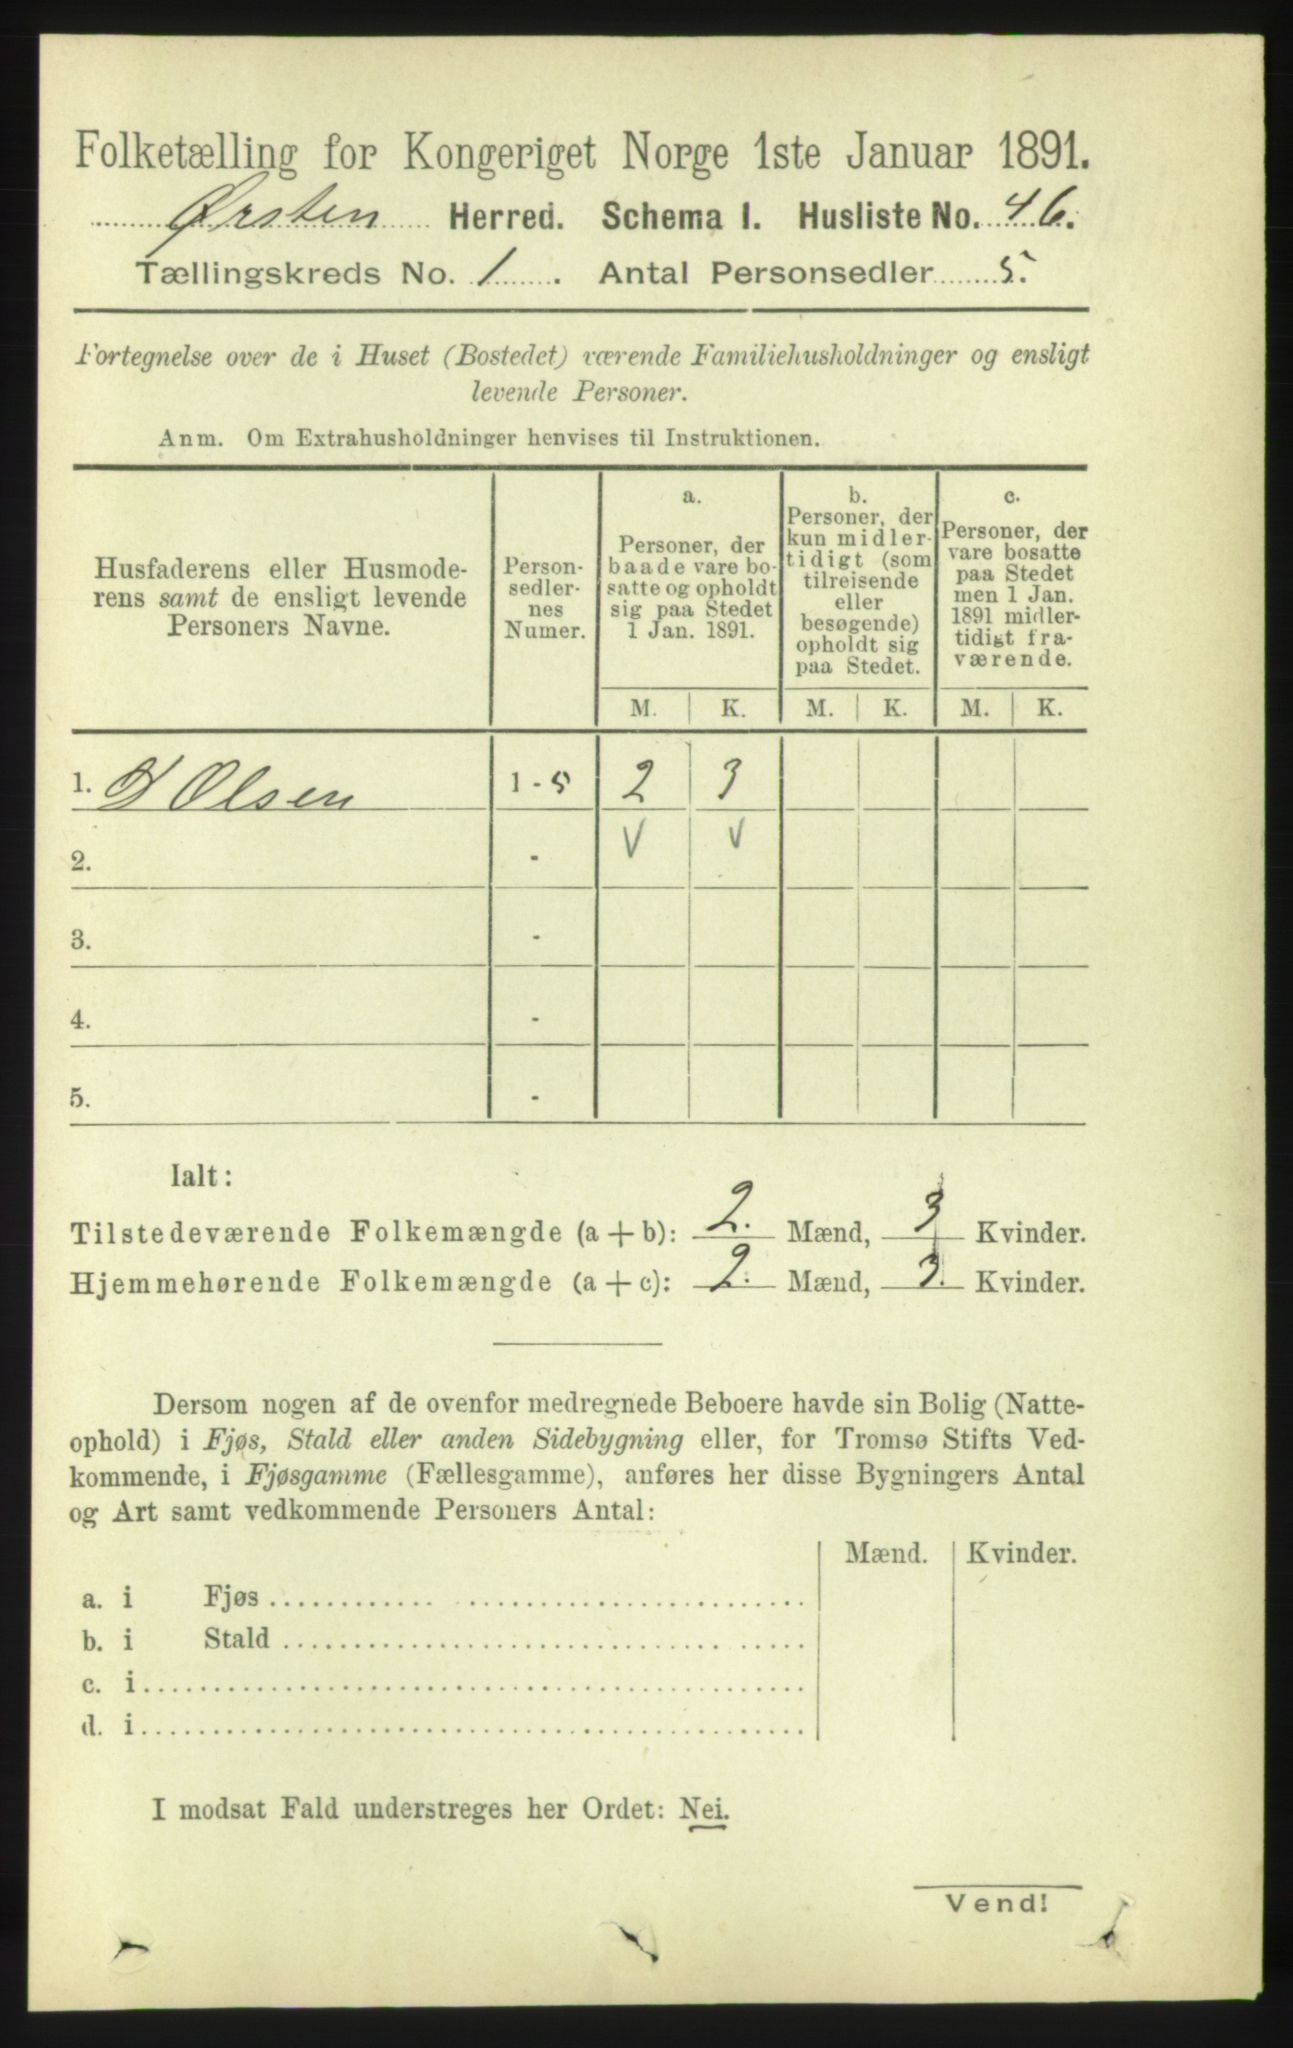 Folketælling for Kongeriget Norge 1ste Januar 1891.
Ørsten Herred. Schema I. Husliste No. 46.
Tællingskreds No. 1. Antal Personsedler 5.
Fortegnelse over de i Huset (Bostedet) værende Familiehusholdninger og ensligt
levende Personer.
Anm. Om Extrahusholdninger henvises til Instruktionen.
Husfaderens eller Husmode-
rens samt de ensligt levende
Personers Navne.
Person-
sedler-
nes
Numer.
a.
Personer, der
baade vare bo-
satte og opholdt
sig paa Stedet
1 Jan. 1891.
b.
Personer, der
kun midler-
tidigt (som
tilreisende
eller
besøgende)
opholdt sig
paa Stedet.
c.
Personer, der
vare bosatte
paa Stedet
men 1 Jan.
1891 midler-
tidigt fra-
værende.
M. K. M. K. M. K.
1. Olsen 1 - 5 2 3
2. - V V
3. -
4. -
5. -
Ialt:
Tilstedeværende Folkemængde (a + b): 2. Mænd, 3 Kvinder.
Hjemmehørende Folkemængde (a + c): 2. Mænd, 3. Kvinder.
Dersom nogen af de ovenfor medregnede Beboere havde sin Bolig (Natte-
ophold) i Fjøs, Stald eller anden Sidebygning eller, for Tromsø Stifts Ved-
kommende, i Fjøsgamme (Fællesgamme), anføres her disse Bygningers Antal
og Art samt vedkommende Personers Antal:
Mænd. Kvinder.
a. i Fjøs
b. i Stald
c. i
d. i
I modsat Fald understreges her Ordet: Nei.
Vend!